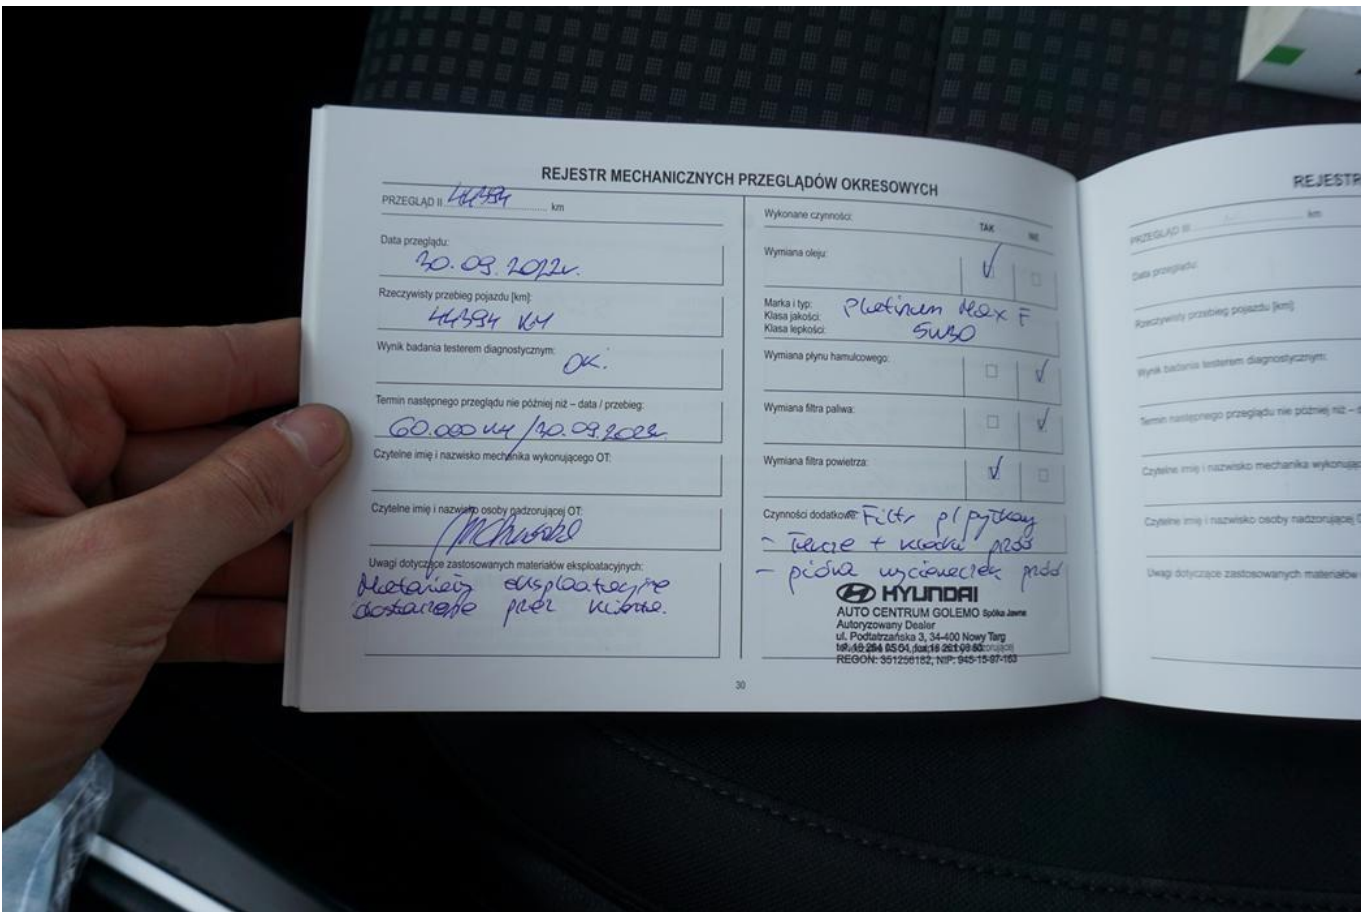 REJESTR MECHANICZNYCH PRZEGLĄDÓW OKRESOWYCH
PRZEGLĄD II 44394 km
Data przeglądu:
30.09.2022r.
Rzeczywisty przebieg pojazdu [km]:
44394 KM
Wynik badania testerem diagnostycznym:
OK.
Termin następnego przeglądu nie później niż – data / przebieg:
60.000 KM / 30.09.2023r.
Czytelne imię i nazwisko mechanika wykonującego OT:
Czytelne imię i nazwisko osoby nadzorującej OT:
Uwagi dotyczące zastosowanych materiałów eksploatacyjnych:
Materiały eksploatacyjne
dostarczone przez klienta.
Wykonane czynności:
TAK NIE
Wymiana oleju:
Marka i typ: Platinum Max F
Klasa jakości:
Klasa lepkości: 5W30
Wymiana płynu hamulcowego:
Wymiana filtra paliwa:
Wymiana filtra powietrza:
Czynności dodatkowe: Filtr p/pyłkowy
- Tarcze + klocki przód
- pióra wycieraczek przód
HYUNDAI
AUTO CENTRUM GOLEMO Spółka Jawna
Autoryzowany Dealer
ul. Podtatrzańska 3, 34-400 Nowy Targ
REGON: 351256182, NIP: 945-15-97-163
30
REJESTR
PRZEGLĄD III km
Data przeglądu:
Rzeczywisty przebieg pojazdu [km]:
Wynik badania testerem diagnostycznym:
Termin następnego przeglądu nie później niż –
Czytelne imię i nazwisko mechanika
Czytelne imię i nazwisko osoby nadzorującej
Uwagi dotyczące zastosowanych materiałów